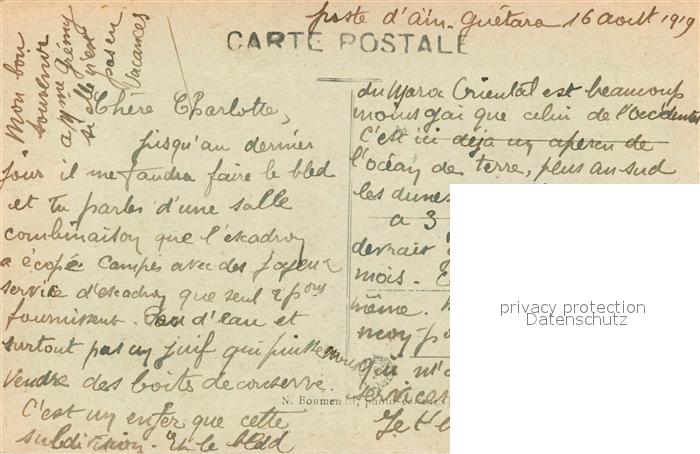 poste d'Aïn-Guétara 16 août 1919
CARTE POSTALE
Mon bon
souvenir
a Mme Grémy
si elle n'est
pas en
vacances
Chère Charlotte,
jusqu'au dernier
jour il me faudra faire le bled
et tu parles d'une salle
combinaison que l'escadron
a écopé campés avec des joyeux
service d'escadron que seul 2 pons
fournissent. Pas d'eau et
surtout pas un juif qui puisse nous
vendre des boites de conserve.
C'est un enfer que cette
subdivision. Et le bled
du Maroc Oriental est beaucoup
moins gai que celui de l'Occidental
C'est ici déja un aperçu de
l'océan de terre, plus au sud
les dunes
a 3
devrait
mois.
même.
mon
qui m'a
services
Je t'
N. Boumendil, photo
privacy protection
Datenschutz